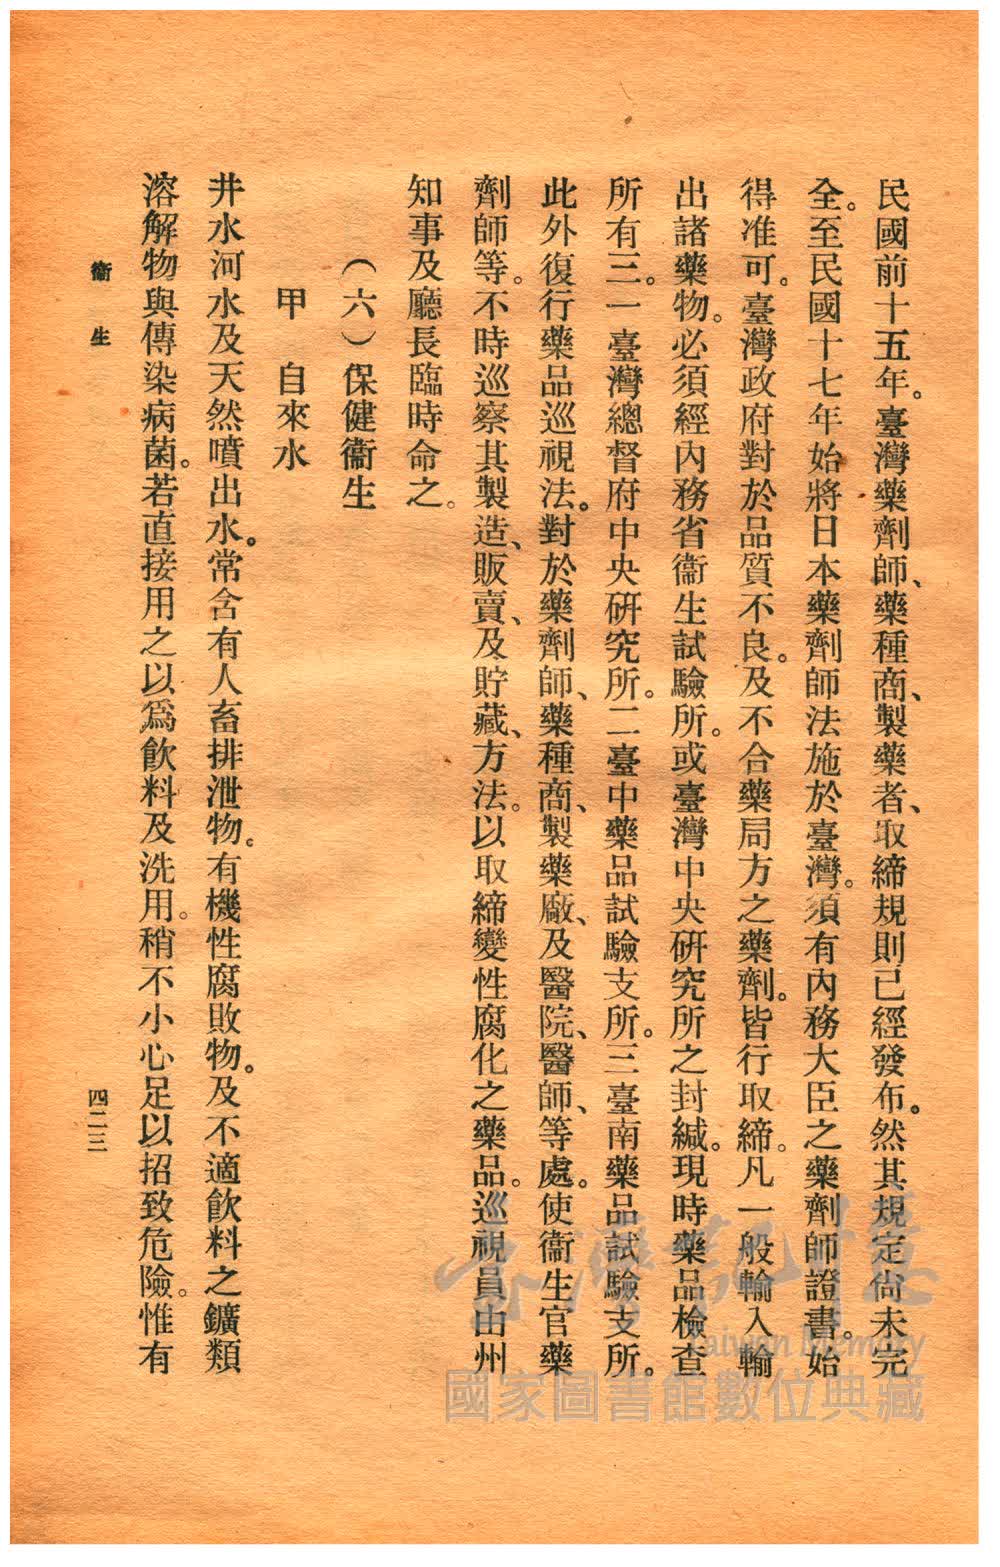 民國前十五年。臺灣藥劑師、藥種商、製藥者、取締規則已經發布。然其規定尙未完
全。至民國十七年始將日本藥劑師法施於臺灣。須有內務大臣之藥劑師證書。始
得准可。臺灣政府對於品質不良。及不合藥局方之藥劑。皆行取締。凡一般輸入輸
出諸藥物。必須經內務省衞生試驗所。或臺灣中央硏究所之封緘。現時藥品檢查
所有三。一臺灣總督府中央硏究所。二臺中藥品試驗支所。三臺南藥品試驗支所。
此外復行藥品巡視法。對於藥劑師、藥種商、製藥廠、及醫院、醫師、等處。使衞生官藥
劑師等。不時巡察其製造、販賣、及貯藏、方法。以取締變性腐化之藥品。巡視員由州
知事及廳長臨時命之。
（六）保健衞生
甲　自來水
井水河水及天然噴出水。常含有人畜排泄物。有機性腐敗物。及不適飮料之鑛類
溶解物與傳染病菌。若直接用之以爲飮料及洗用。稍不小心足以招致危險。惟有
衞生
四二三
臺灣記憶
Taiwan Memory
國家圖書館數位典藏